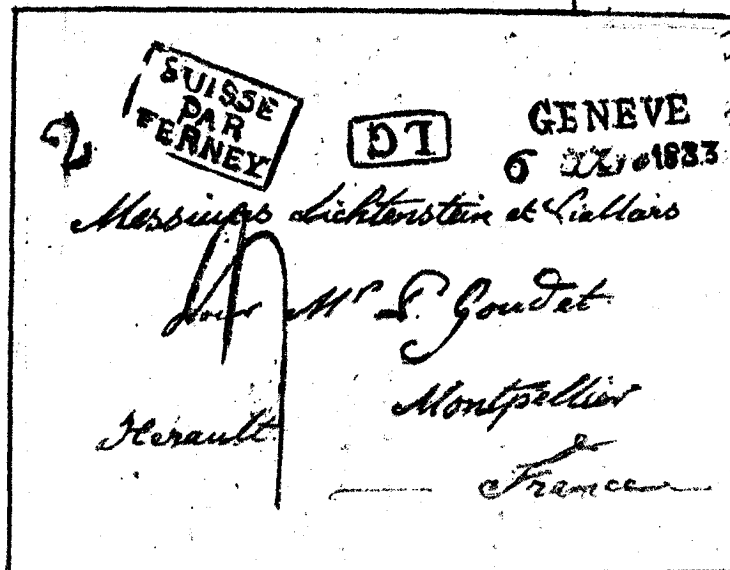 SUISSE
PAR
FERNEY
LG
GENEVE
6 1833
2
Messieurs Lichtenstein et Vialars
pour Mr P. Goudet
Montpellier
Herault
France